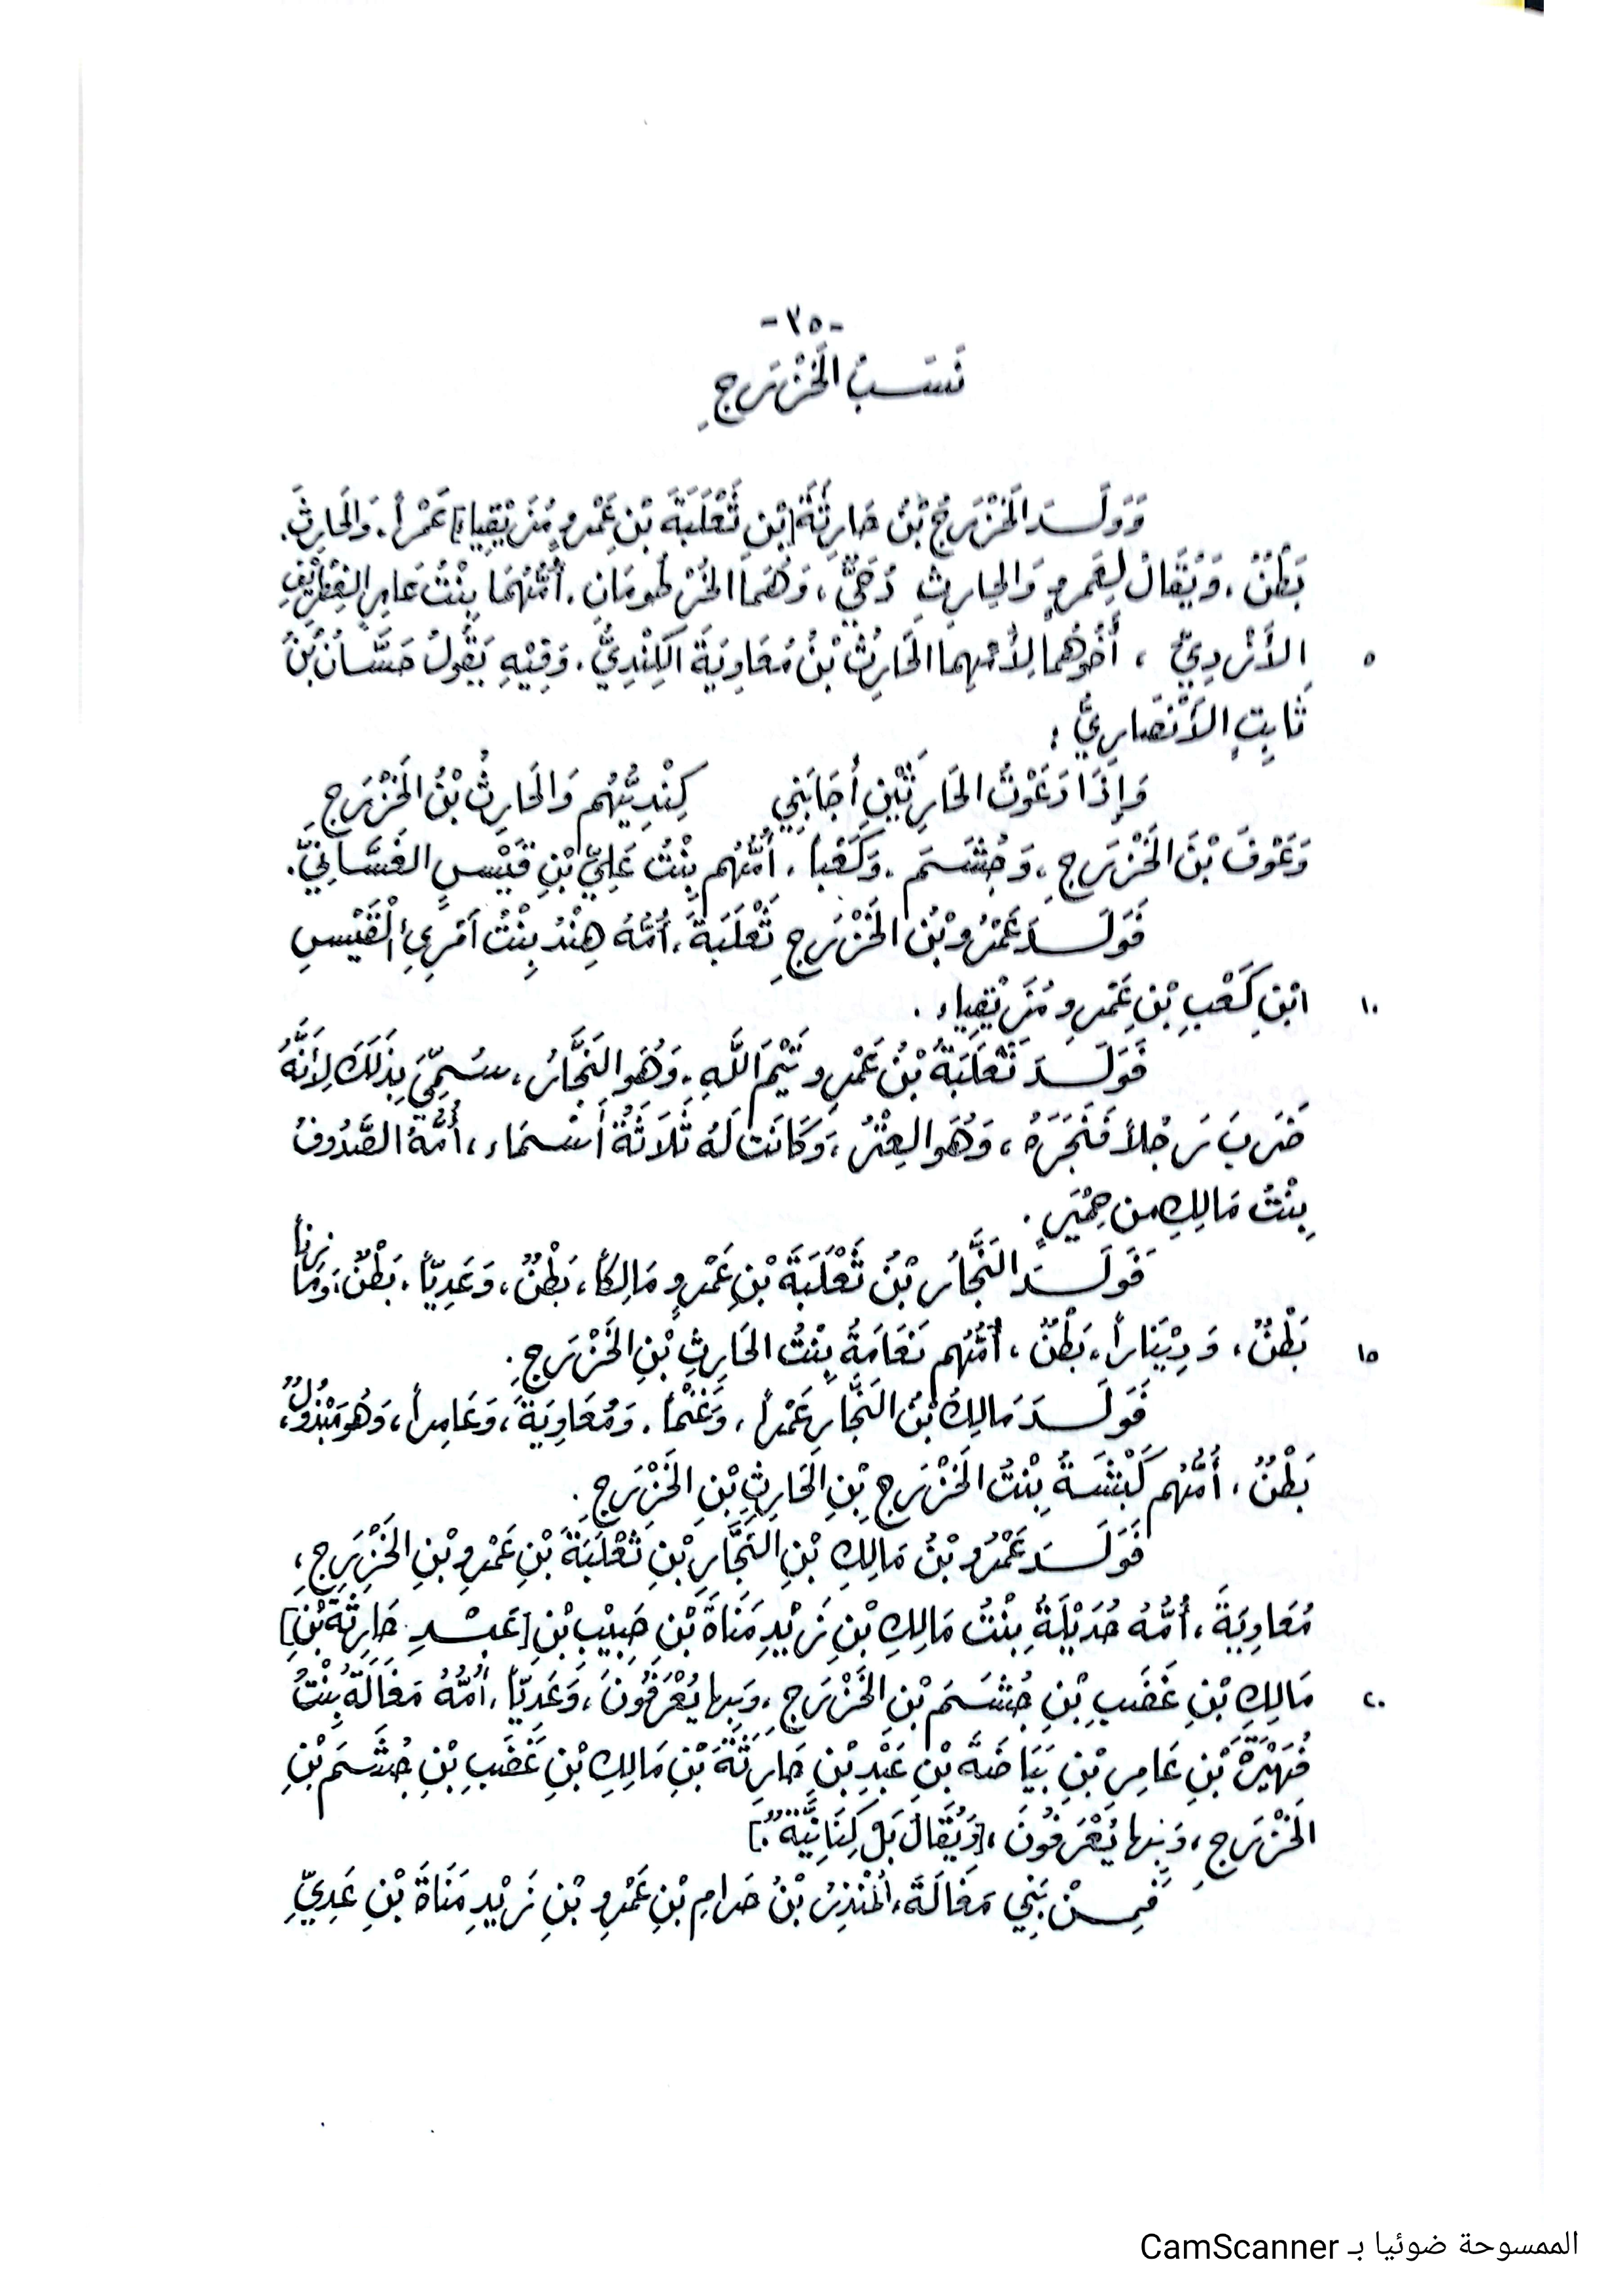 -٣٥-
نَسَبُ الخَزْرَجِ
وَوَلَدَ الخَزْرَجُ بْنُ حَارِثَةَ [بْنِ ثَعْلَبَةَ بْنِ عَمْروٍ مُزَيْقِيَاءَ] عَمْراً. وَالحَارِثَ.
بَطْنٌ، وَيُقَالُ لِعَمروٍ وَالحارِثِ دُحَيٌّ، وَهُمَا الخُرْطُومَانِ. أُمُّهُمَا بِنْتُ عَامِرٍ الغِطْرِيْفِ
٥ الأَزْدِيِّ، أَخُوهُما لِأُمِّهِما الحَارِثُ بْنُ مُعَاوِيَةَ الكِنْدِيُّ. وَفِيْهِ يَقُولُ حَسَّانُ بْنُ
ثَابِتٍ الأَنْصَارِيُّ:
وَإِذَا دَعَوْتُ الحَارِثَيْنِ أَجَابَنِي كِنْدِيُّهُم وَالحَارِثُ بْنُ الخَزْرَجِ
وَعَوْفَ بْنَ الخَزْرَجِ، وَجُشَمَ. وَكَعْباً. أُمُّهُم بِنْتُ عَلِيِّ بْنِ قَيْسٍ الغَسَّانِيِّ.
فَوَلَدَ عَمْرُو بْنُ الخَزْرَجِ ثَعْلَبَةَ، أُمُّهُ هِنْدُ بِنْتُ امْرِئِ الْقَيْسِ
١٠ ابْنِ كَعْبِ بْنِ عَمْرِو مُزَيْقِيَاءَ.
فَوَلَدَ ثَعْلَبَةُ بْنُ عَمْرٍو تَيْمَ اللَّهِ. وَهُوَ النَّجَّارُ، سُمِّيَ بِذَلِكَ لِأَنَّهُ
ضَرَبَ رَجُلاً فَنَجَرَهُ، وَهُوَ العِتْرُ، وَكَانَت لَهُ ثَلَاثَةُ أَسْمَاء، أُمُّهُ الصَّدُوفُ
بِنْتُ مَالِكٍ من حِمْيَرٍ.
فَوَلَدَ النَّجَّارُ بْنُ ثَعْلَبَةَ بْنِ عَمْروٍ مَالِكاً، بَطْنٌ، وَعَدِيّاً. بَطْنٌ، وَمَازِناً
١٥ بَطْنٌ، وَدِيْنَاراً، بَطْنٌ، أُمُّهُم نَعَامَةُ بِنْتُ الحَارِثِ بْنِ الخَزْرَجِ.
فَوَلَدَ مَالِكُ بْنُ النَّجَّارِ عَمْراً، وَغَنْماً. وَمُعَاوِيَةَ، وَعَامِراً، وَهُوَ مَبْذُولٌ،
بَطْنٌ، أُمُّهُم كَبْشَةُ بِنْتُ الخَزْرَجِ بْنِ الحَارِثِ بْنِ الخَزْرَجِ.
فَوَلَدَ عَمْرُو بْنُ مَالِكِ بْنِ النَّجَّارِ بْنِ ثَعْلَبَةَ بْنِ عَمْرِو بْنِ الخَزْرَجِ،
مُعَاوِيَةَ، أُمُّهُ حُدَيْلَةُ بِنْتُ مَالِكِ بْنِ زَيْدِ مَنَاةَ بْنِ حَبِيْبِ بْنِ [عَبْدِ حَارِثَةَ بْنِ]
٢٠ مَالِكِ بْنِ غَضَبِ بْنِ جُشَمَ بْنِ الخَزْرَجِ، وَبِها يُعْرَفُونَ، وَعَدِيّاً، أُمُّهُ مَغَالَةُ بِنْتُ
فُهَيْرَةَ بْنِ عَامِرِ بْنِ بَيَاضَةَ بْنِ عَبْدِ بْنِ حَارِثَةَ بْنِ مَالِكِ بْنِ غَضَبِ بْنِ جُشَمَ بْنِ
الخَزْرَجِ، وَبِها يُعْرَفُونَ، [وَيُقَالُ بَلْ كِنَانِيَّةٌ.]
فَمِنْ بَنِي مَغَالَةَ، المُنْذِرُ بْنُ حَرَامِ بْنِ عَمْرِو بْنِ زَيْدِ مَنَاةَ بْنِ عَدِيِّ
الممسوحة ضوئيا بـ CamScanner